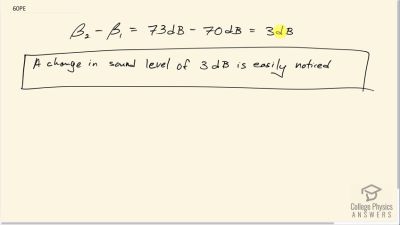 60PE
β₂ - β₁ = 73dB - 70dB = 3dB
A change in sound level of 3 dB is easily noticed
College Physics
ANSWERS